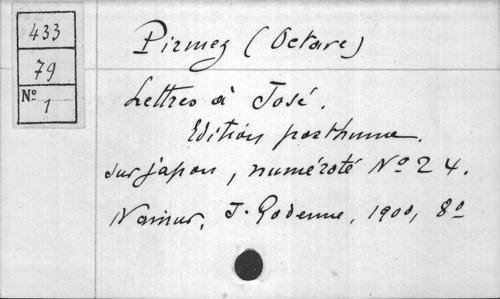 433
79
N° 1
Pirmez (Octave)
Lettres à José.
Edition posthume.
sur japon, numéroté N° 24.
Namur, J. Godenne, 1900, 8°